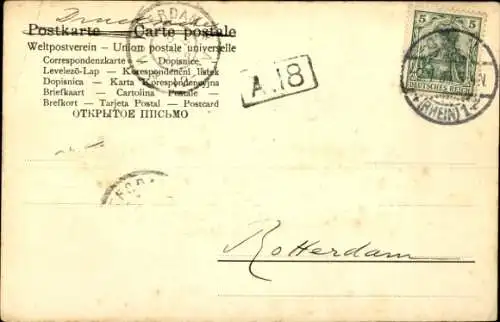 Drucksache
Postkarte — Carte postale
Weltpostverein – Union postale universelle
Correspondenzkarte – Dopisnice
Levelező-Lap – Korespondenční lístek
Dopisnica – Karta Korespondencyjna
Briefkaart – Cartolina Postale –
Brefkort – Tarjeta Postal – Postcard
ОТКРЫТОЕ ПИСЬМО
A.18
5 5
DEUTSCHES REICH
(RHEIN) 1
Rotterdam